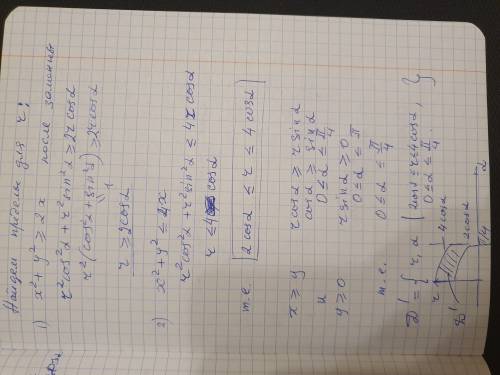 Найдем пределы для r:
1) x² + y² ≥ 2x после замены
r²cos²α + r²sin²α ≥ 2r cosα
r²(cos²α + sin²α) ≥ 2r cosα
1
r ≥ 2cosα
2) x² + y² ≤ 4x
r²cos²α + r²sin²α ≤ 4r cosα
r ≤ 4 cosα
т.е. 2cosα ≤ r ≤ 4cosα
x ≥ y r cosα ≥ r sinα
cosα ≥ sinα
и 0 ≤ α ≤ π/4
y ≥ 0 r sinα ≥ 0
0 ≤ α ≤ π
т.е. 0 ≤ α ≤ π/4
D' = { r, α | 2cosα ≤ r ≤ 4cosα, }
0 ≤ α ≤ π/4.
r
4cosα
D'
2cosα
π/4
α